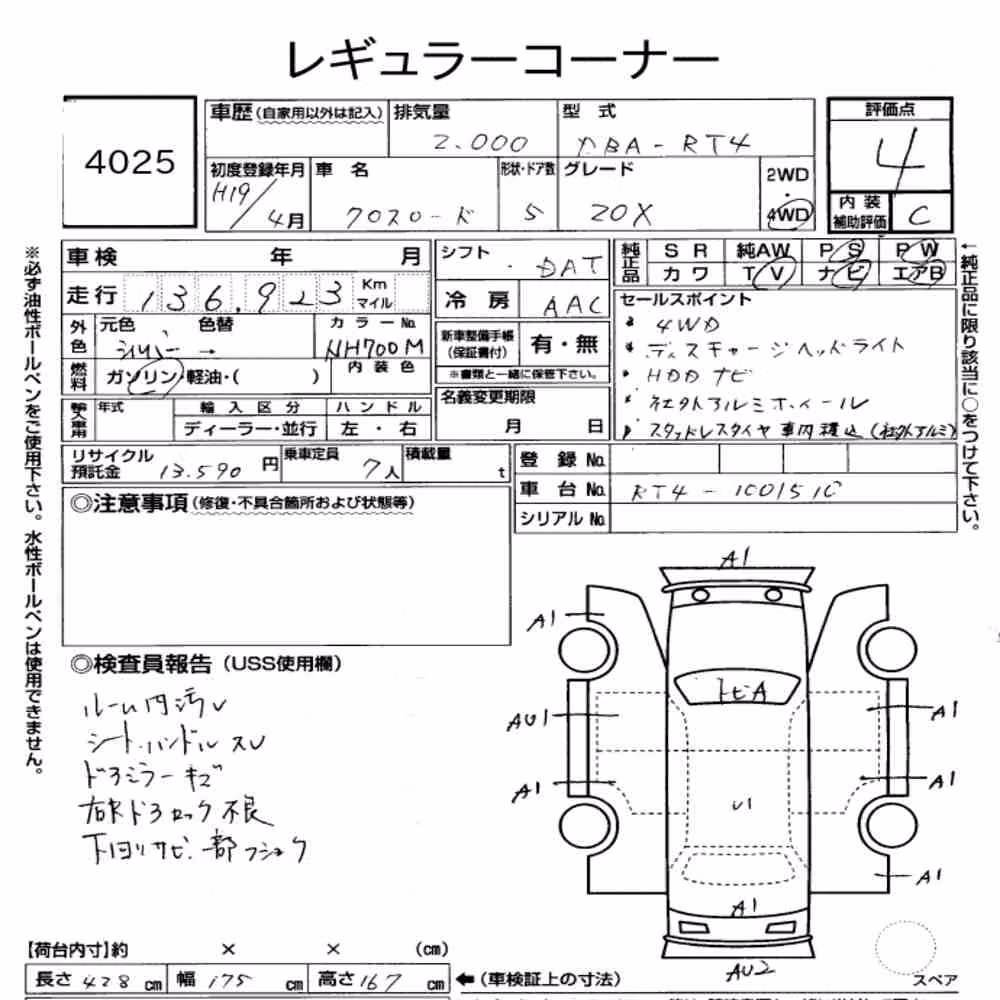 レギュラーコーナー
4025
車歴 (自家用以外は記入) 排気量 型式 評価点
2.000 DBA-RT4 4
初度登録年月 車名 形状・ドア数 グレード 2WD
・
H19/4月 クロスロード 5 20X 4WD
内装補助評価 C
車検 年 月 シフト DAT
純正品 SR 純AW PS PW
カワ TV ナビ エアB
走行 136,923 Km マイル
冷房 AAC
セールスポイント
4WD
ディスチャージヘッドライト
HDDナビ
社外アルミホイール
スタッドレスタイヤ車内積込(社外アルミ)
外色 元色 色替 カラーNo.
シルバー → NH700M
新車整備手帳(保証書付) 有・無
※書類と一緒に保管下さい。
燃料 ガソリン・軽油・( ) 内装色
名義変更期限
月 日
輸入車用 年式 輸入区分 ハンドル
ディーラー・並行 左・右
リサイクル預託金 13.590円 乗車定員 7人 積載量 t
登録No.
車台No. RT4-1001510
シリアルNo.
※必ず油性ボールペンをご使用下さい。水性ボールペンは使用できません。
←純正品に限り該当に○をつけて下さい。
◎注意事項(修復・不具合箇所および状態等)
◎検査員報告(USS使用欄)
ルーム内汚レ
シート・ハンドルスレ
ドアミラーキズ
右Rドアロック不良
下回リサビ一部フショク
A1
A1
トビA
AU1
A1
A1
A1
U1
A1
A1
AU2
スペア
【荷台内寸】約 × × (cm)
長さ 428 cm 幅 175 cm 高さ 167 cm ←(車検証上の寸法)